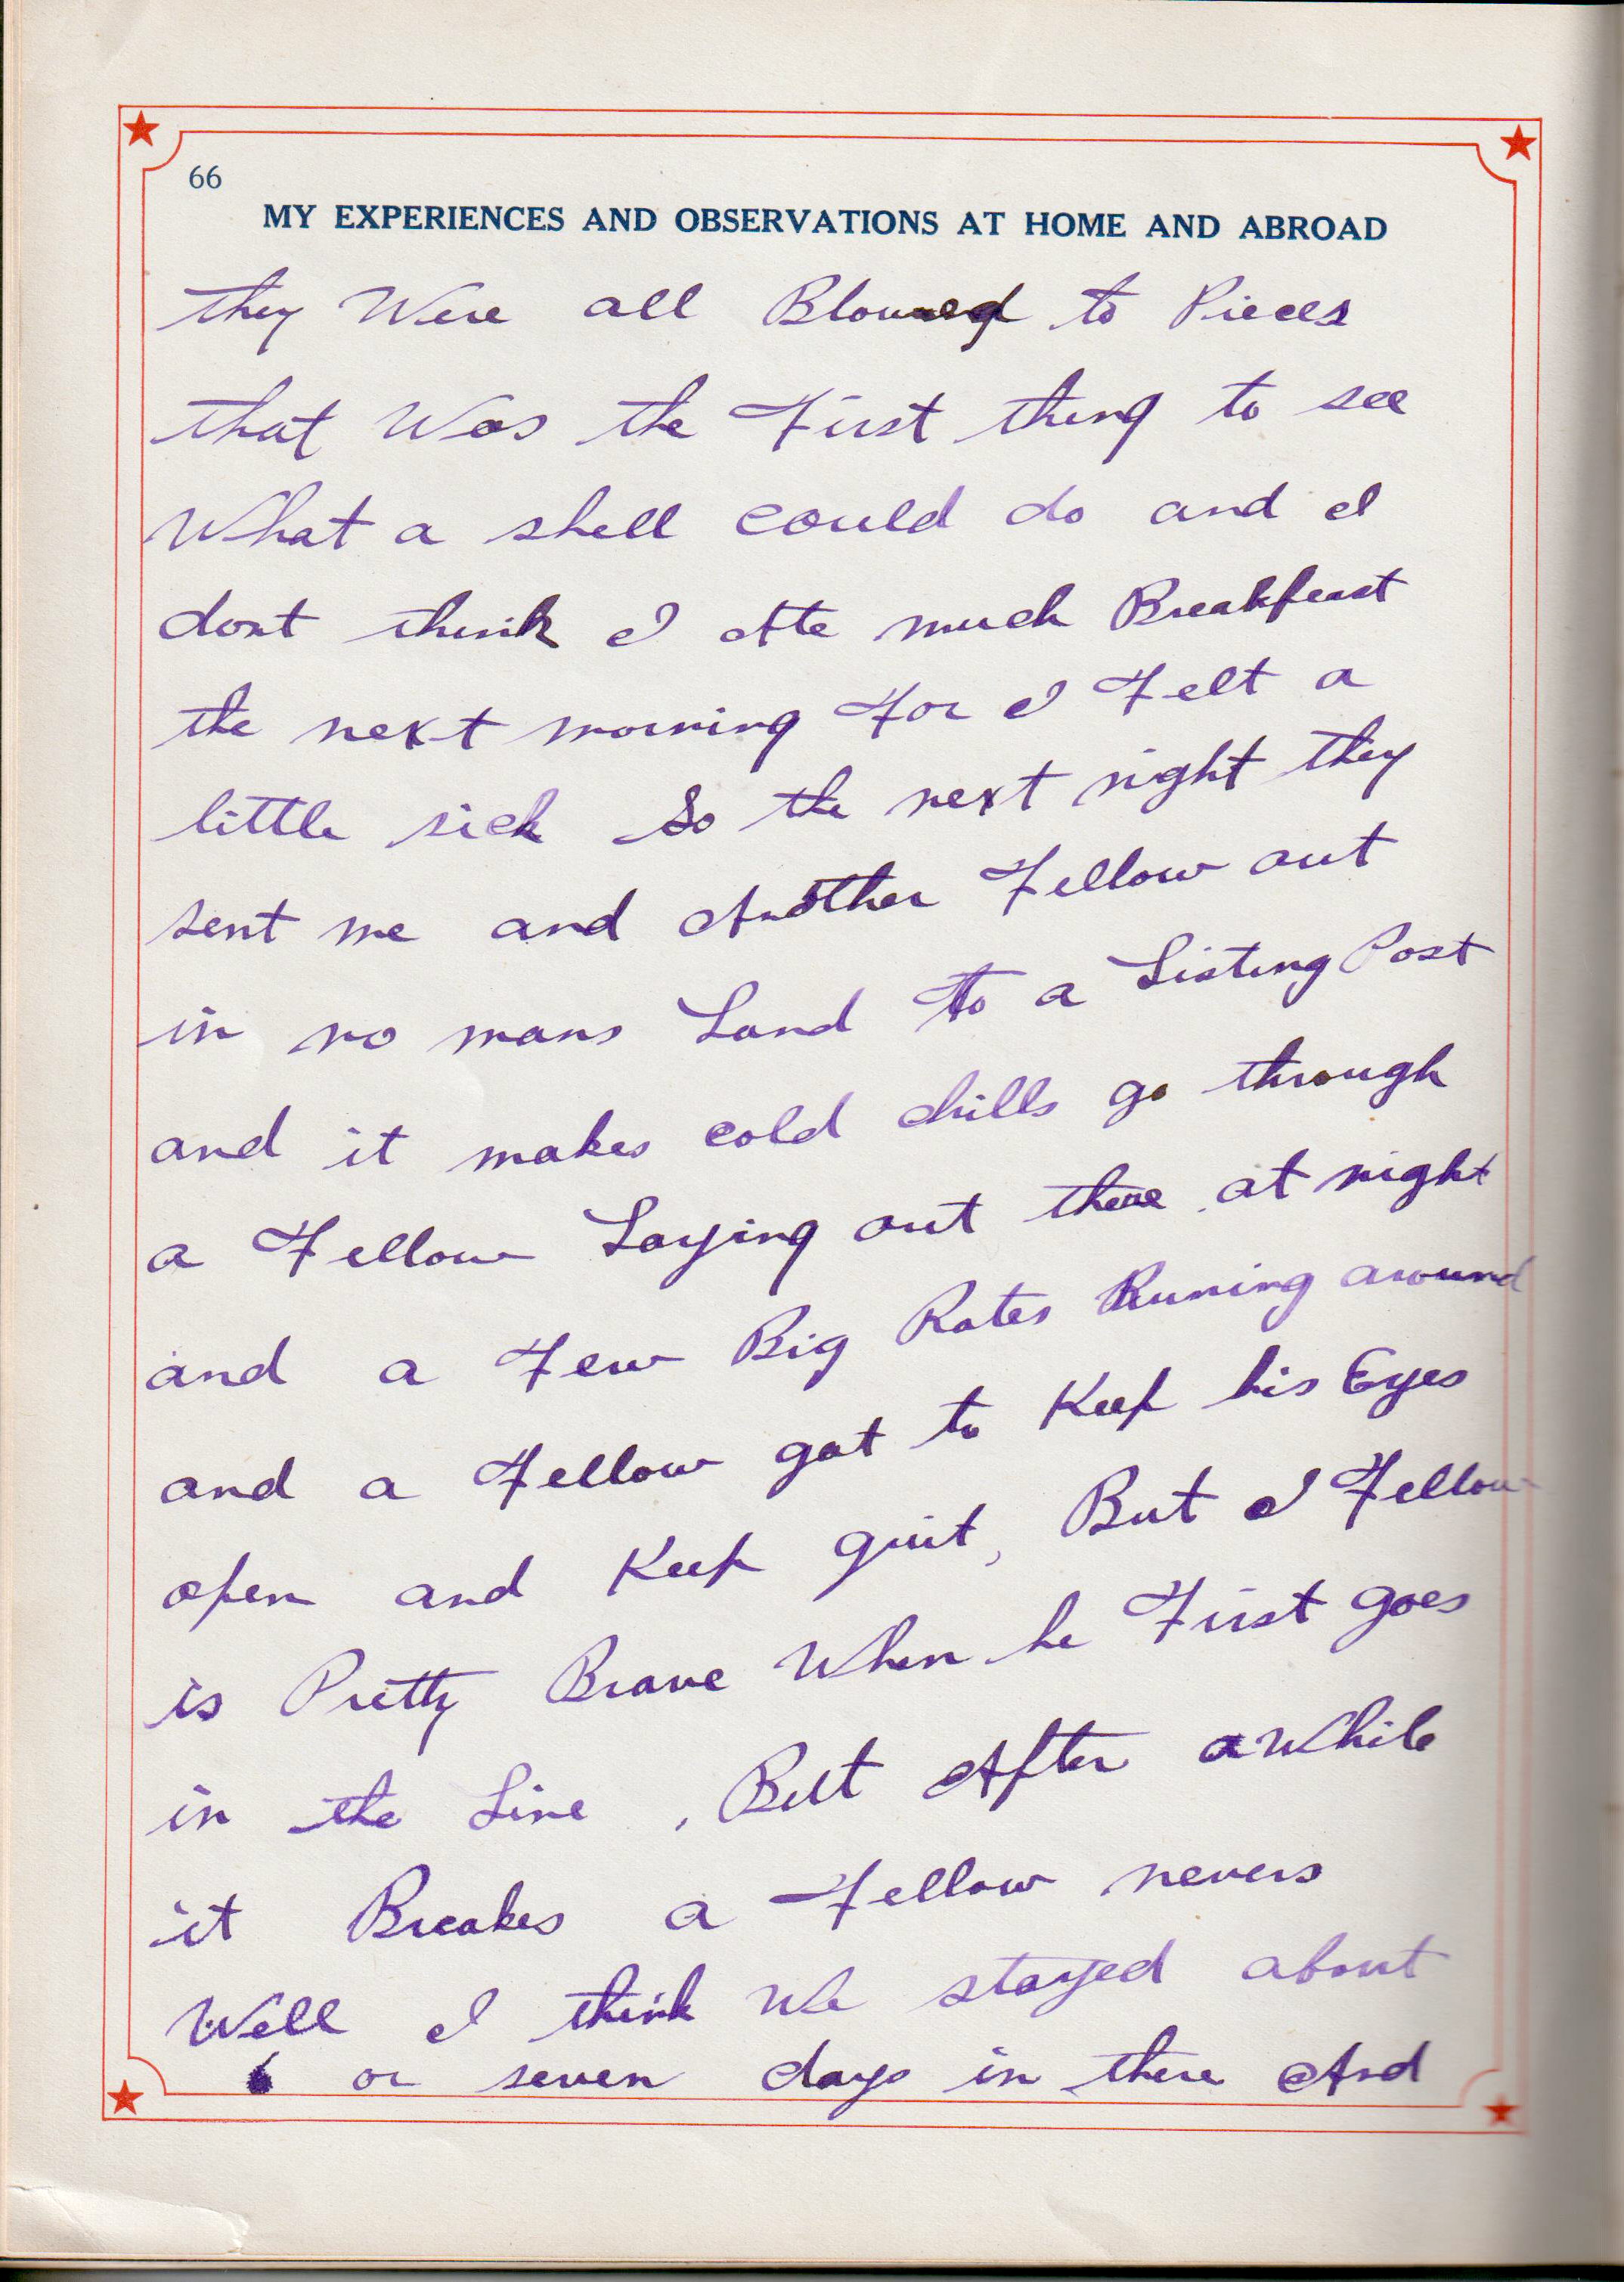 66
MY EXPERIENCES AND OBSERVATIONS AT HOME AND ABROAD
they Were all Blowed to Pieces
that Was the First thing to see
What a shell could do and I
dont think I Ate much Breakfeast
the next morning For I Felt a
little sick So the next night they
sent me and Another Fellow out
in no mans Land To a Listing Post
and it makes cold chills go through
a Fellow Laying out there at night
and a Few Big Rates Runing around
and a Fellow got to Keep his Eyes
open and Keep quit, But I Fellow
is Pretty Brave When he First goes
in the Line , But After awhile
it Breakes a Fellow nevers
Well I think We stayed about
6 or seven days in there And